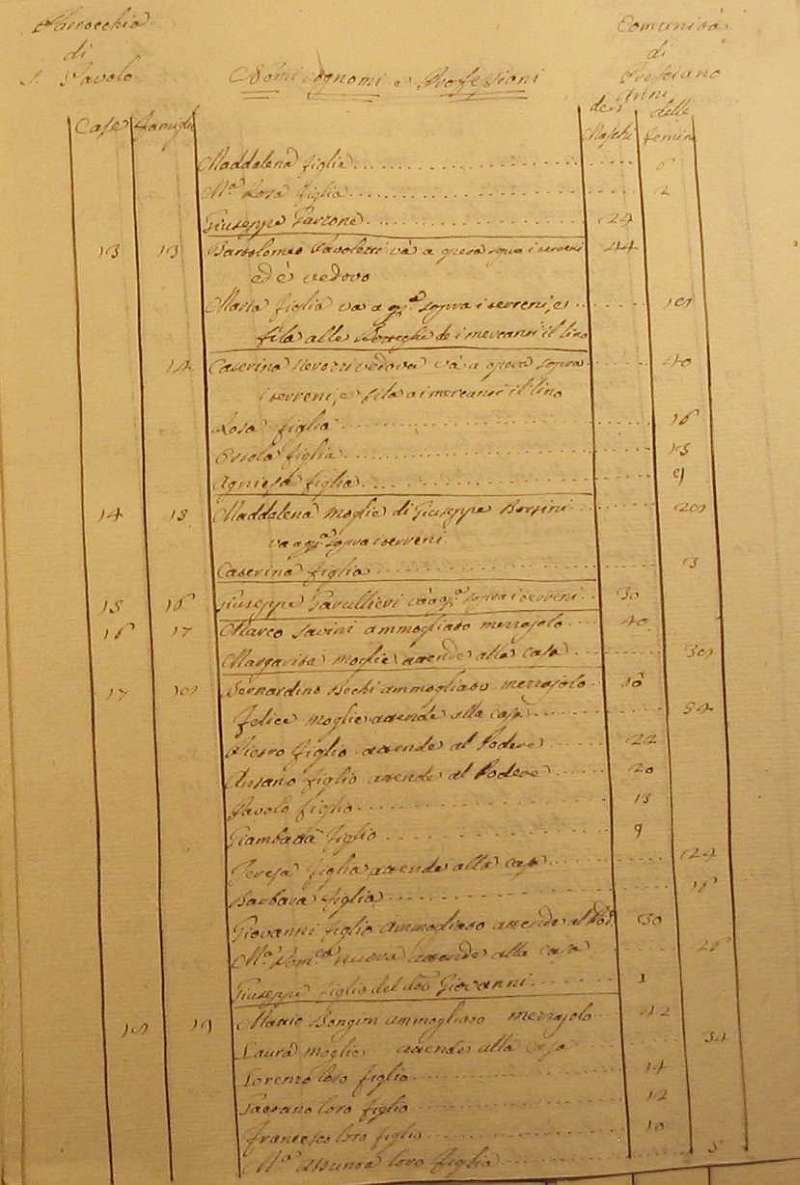 Parrocchia
di
S. Pavolo
Comunità
di
Nomi cognomi e Professioni
Anni
dei
delle
Case famiglie
Maschi femine
Maddalena figlia
Mª Rosa figlia
Giuseppe Garzone 24
13 13 Bartolomeo Pavoletti và a opera sopra i terreni 44
ed è vedovo
Maria figlia va a opª sopra i terreni, e
fila alle de i mercanti il lino
14 Caterina vedova và a opera sopra 40
i terreni, e fila a i mercanti il lino
Rosa figlia 16
figlia 13
Agniesa figlia 9
14 15 Maddalena moglie di Giuseppe Borsini
va a opª sopra i terreni
Caterina figlia 3
15 16 Giuseppe và a opª sopra i terreni 30
16 17 Marco Savini ammogliato mezzajolo 40
Margarita moglie attende alla casa
17 Bernardino Bechi ammogliato mezzajolo
Felice moglie attende alla casa 54
Pietro figlio attende al Podere 22
Ansano figlio attende al Podere 20
Pavolo figlio 13
Giambatta figlio 9
Teresa figlia attende alla casa 24
Barbara figlia 16
Giovanni figlio ammogliato attende al Pod 30
Mª Domca nuora attende alla casa 26
Giuseppe figlio del dto Giovanni 1
19 ammogliato mezzajolo 42
Laura moglie attende alla casa 34
Lorenzo loro figlio 14
Gaetano loro figlio 12
Francesco loro figlio 10
Mª Assunta loro figlia 5